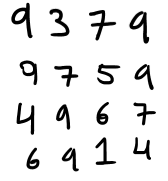 9 3 7 9
9 7 5 9
4 9 6 7
6 9 1 4